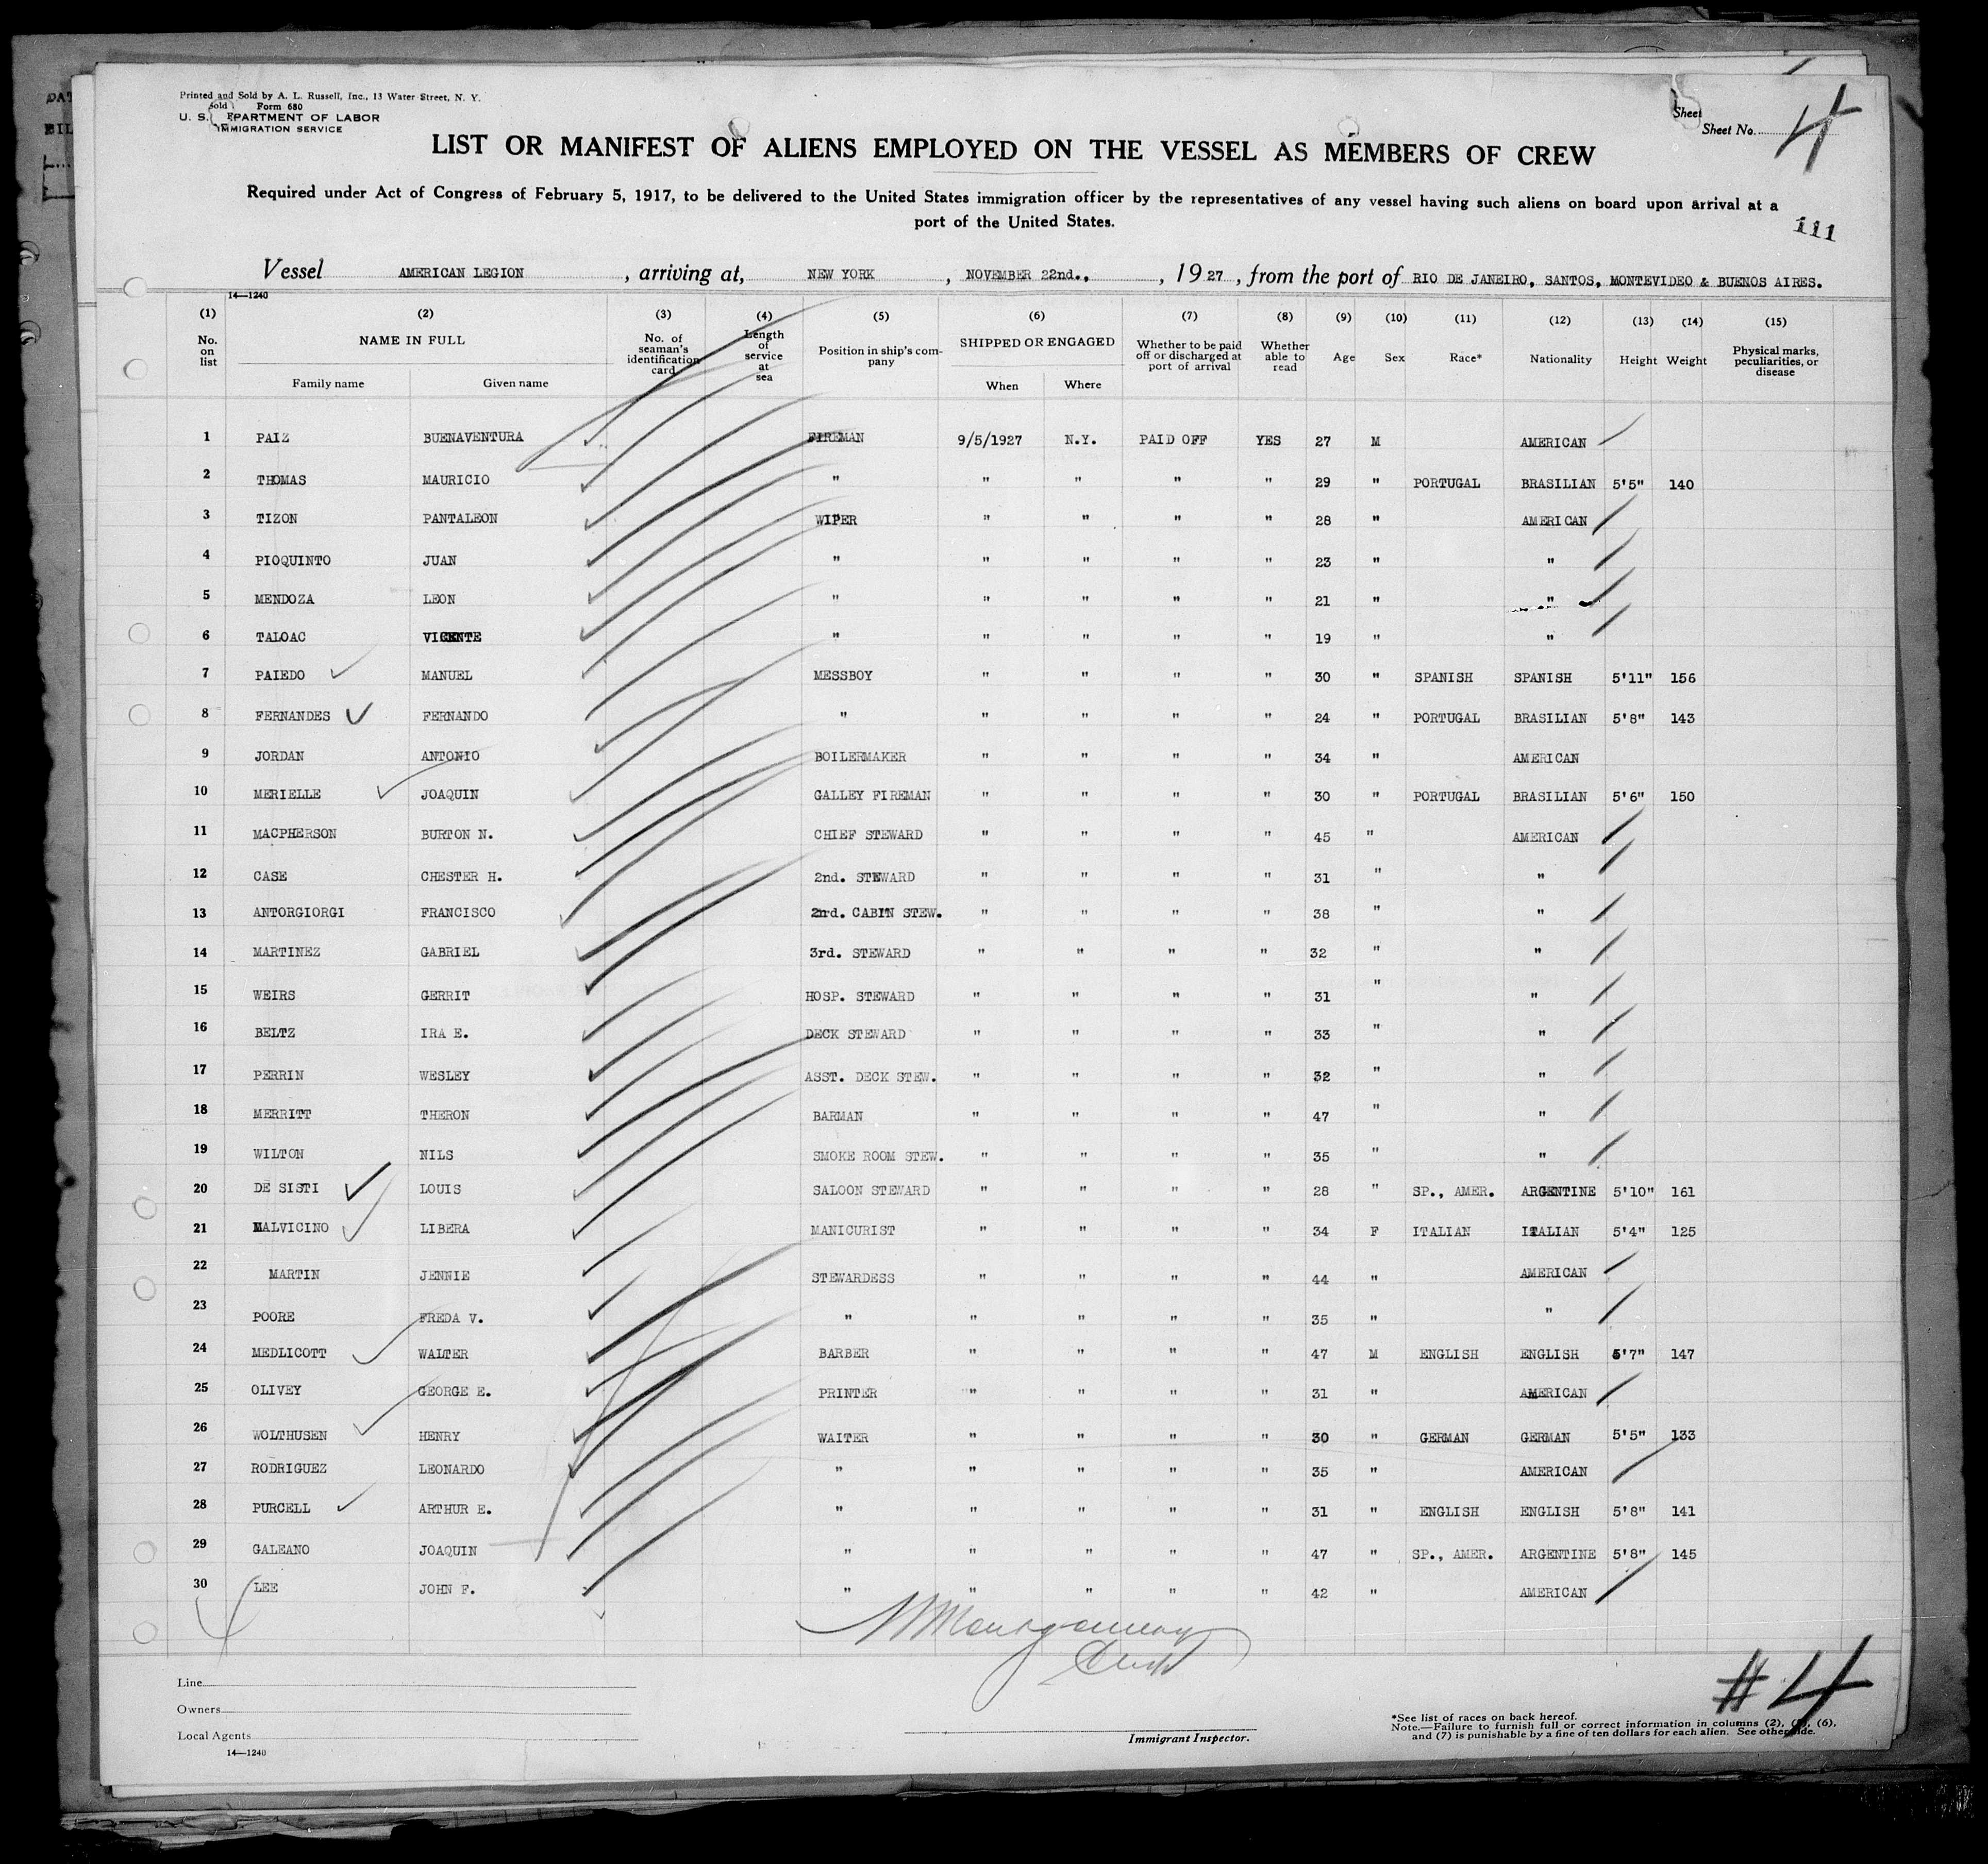 Printed and Sold by A. L. Russell, Inc., 13 Water Street, N. Y.
Sold Form 680
U. S. EPARTMENT OF LABOR
IMMIGRATION SERVICE
Sheet
Sheet No. 4
LIST OR MANIFEST OF ALIENS EMPLOYED ON THE VESSEL AS MEMBERS OF CREW
Required under Act of Congress of February 5, 1917, to be delivered to the United States immigration officer by the representatives of any vessel having such aliens on board upon arrival at a
port of the United States.
111
Vessel AMERICAN LEGION , arriving at, NEW YORK , NOVEMBER 22nd., , 1927 , from the port of RIO DE JANEIRO, SANTOS, MONTEVIDEO & BUENOS AIRES.
14—1240
(1) (2) (3) (4) (5) (6) (7) (8) (9) (10) (11) (12) (13) (14) (15)
No. on list NAME IN FULL Family name Given name No. of seaman's identification card Length of service at sea Position in ship's company SHIPPED OR ENGAGED When Where Whether to be paid off or discharged at port of arrival Whether able to read Age Sex Race* Nationality Height Weight Physical marks, peculiarities, or disease
1 PAIZ BUENAVENTURA FIREMAN 9/5/1927 N.Y. PAID OFF YES 27 M AMERICAN
2 THOMAS MAURICIO " " " " " 29 " PORTUGAL BRASILIAN 5'5" 140
3 TIZON PANTALEON WIPER " " " " 28 " AMERICAN
4 PIOQUINTO JUAN " " " " " 23 " "
5 MENDOZA LEON " " " " " 21 " "
6 TALOAC VICENTE " " " " " 19 " "
7 PAIEDO MANUEL MESSBOY " " " " 30 " SPANISH SPANISH 5'11" 156
8 FERNANDES FERNANDO " " " " " 24 " PORTUGAL BRASILIAN 5'8" 143
9 JORDAN ANTONIO BOILERMAKER " " " " 34 " AMERICAN
10 MERIELLE JOAQUIN GALLEY FIREMAN " " " " 30 " PORTUGAL BRASILIAN 5'6" 150
11 MACPHERSON BURTON N. CHIEF STEWARD " " " " 45 " AMERICAN
12 CASE CHESTER H. 2nd. STEWARD " " " " 31 " "
13 ANTORGIORGI FRANCISCO 2nd. CABIN STEW. " " " " 38 " "
14 MARTINEZ GABRIEL 3rd. STEWARD " " " " 32 " "
15 WEIRS GERRIT HOSP. STEWARD " " " " 31 " "
16 BELTZ IRA E. DECK STEWARD " " " " 33 " "
17 PERRIN WESLEY ASST. DECK STEW. " " " " 32 " "
18 MERRITT THERON BARMAN " " " " 47 " "
19 WILTON NILS SMOKE ROOM STEW. " " " " 35 " "
20 DE SISTI LOUIS SALOON STEWARD " " " " 28 " SP., AMER. ARGENTINE 5'10" 161
21 MALVICINO LIBERA MANICURIST " " " " 34 F ITALIAN ITALIAN 5'4" 125
22 MARTIN JENNIE STEWARDESS " " " " 44 " AMERICAN
23 POORE FREDA V. " " " " " 35 " "
24 MEDLICOTT WALTER BARBER " " " " 47 M ENGLISH ENGLISH 5'7" 147
25 OLIVEY GEORGE E. PRINTER " " " " 31 " AMERICAN
26 WOLTHUSEN HENRY WAITER " " " " 30 " GERMAN GERMAN 5'5" 133
27 RODRIGUEZ LEONARDO " " " " " 35 " AMERICAN
28 PURCELL ARTHUR E. " " " " " 31 " ENGLISH ENGLISH 5'8" 141
29 GALEANO JOAQUIN " " " " " 47 " SP., AMER. ARGENTINE 5'8" 145
30 LEE JOHN F. " " " " " 42 " AMERICAN
Montgomery
Line
Owners
Local Agents
14—1240
Immigrant Inspector.
#4
*See list of races on back hereof.
Note.—Failure to furnish full or correct information in columns (2), (6),
and (7) is punishable by a fine of ten dollars for each alien. See other side.